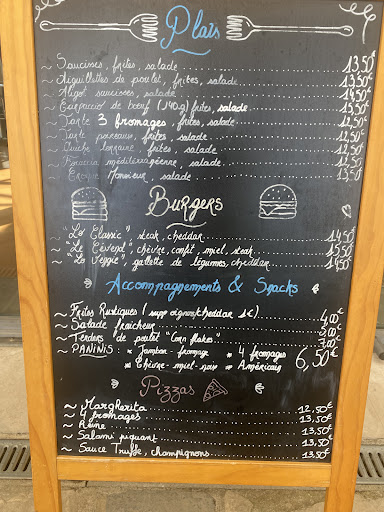 Plats
~ Saucisses, frites, salade 13,50€
~ Aiguillettes de poulet, frites, salade 13,50€
~ Aligot saucisses, salade 14,50€
~ Carpaccio de bœuf (140g) frites, salade 13,50€
~ Tarte 3 fromages, frites, salade 12,50€
~ Tarte poireaux, frites, salade 12,50€
~ Quiche lorraine, frites, salade 12,50€
~ méditerranéenne, salade 12,50€
~ Croque Monsieur, salade 13,50€
BURGERS
~ "Le Classic", steak, cheddar 14,50€
~ "Le Cévenol", chèvre, confit, miel, steak 15,50€
~ "Le Veggie", galette de légumes, cheddar 14,50€
Accompagnements & Snacks
~ Frites Rustiques (supp oignons/cheddar 1€) 4,00€
~ Salade fraicheur 5,00€
~ Tenders de poulet "Corn flakes" 7,00€
~ PANINIS : * Jambon-fromage * 4 fromages 6,50€
* Chèvre-miel-noix * Américain
Pizzas
~ MARGHERITA 12,50€
~ 4 fromages 13,50€
~ Reine 13,50€
~ Salami piquant 13,50€
~ Sauce Truffe, champignons 13,50€